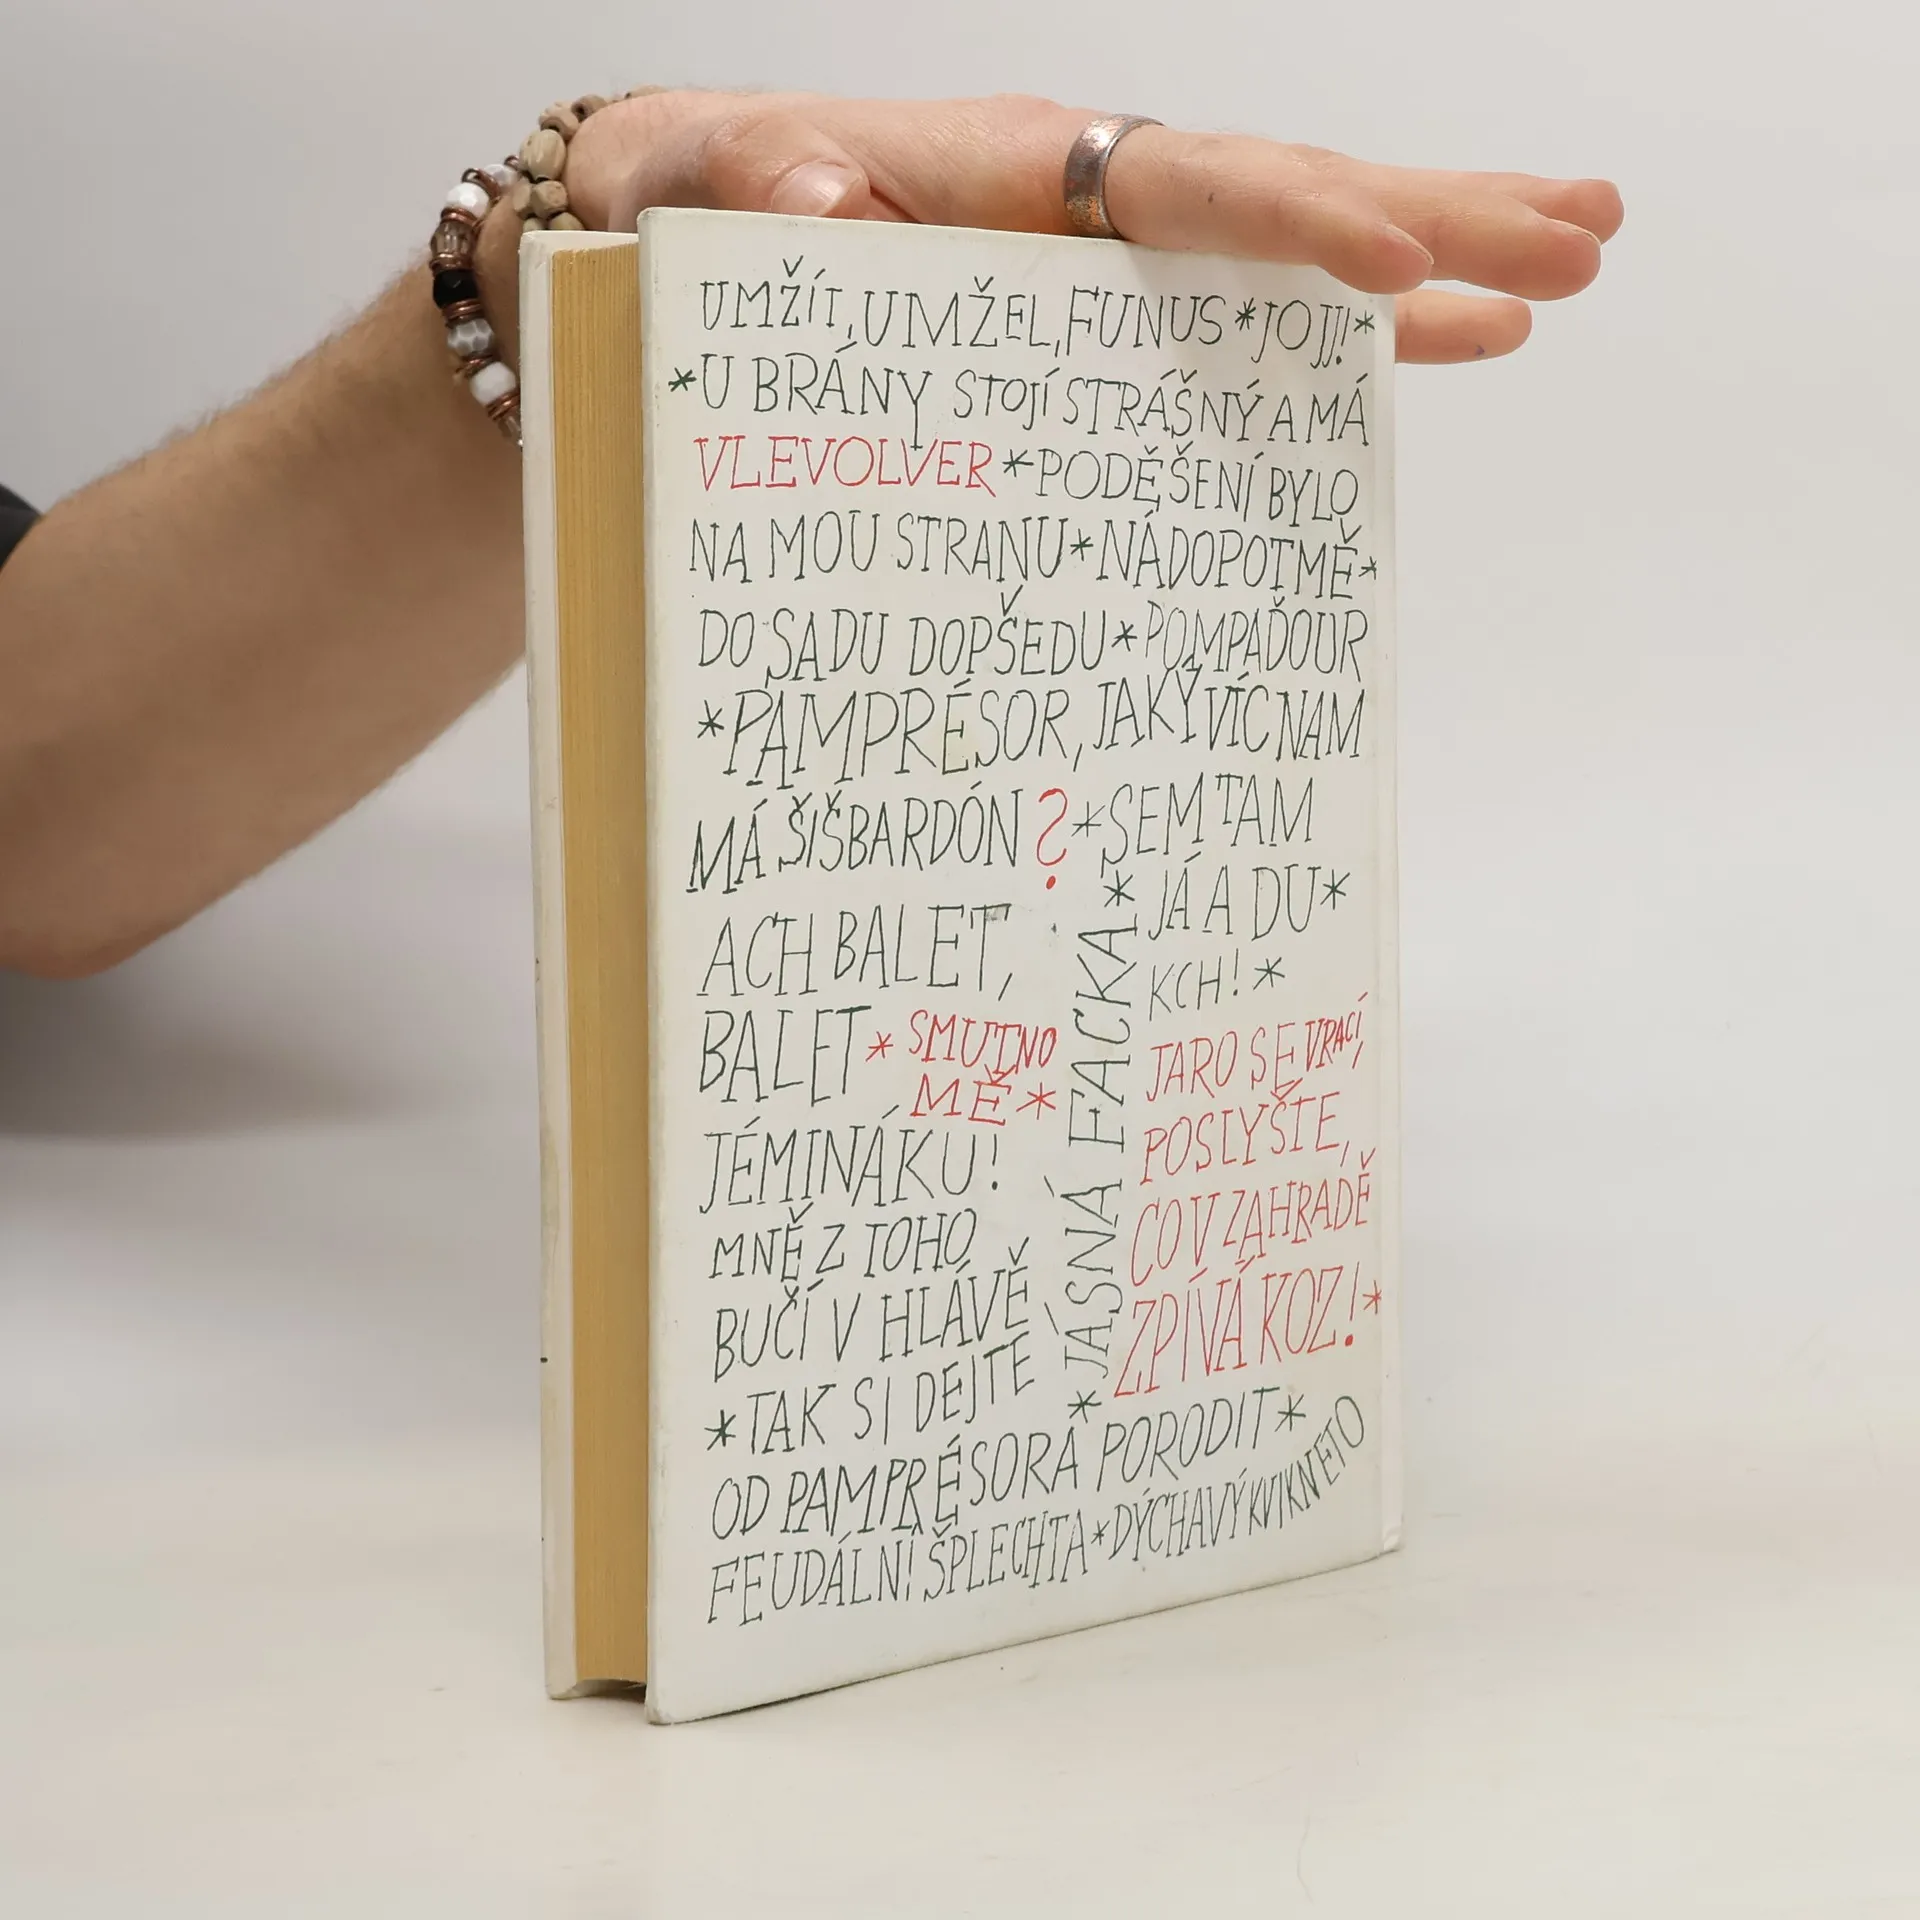 UMŽÍT, UMŽEL, FUNUS * JOJJ! *
* U BRÁNY STOJÍ STRÁŠNÝ A MÁ
VLEVOLVER * PODĚŠENÍ BYLO
NA MOU STRANU * NÁDOPOTMĚ *
DO SADU DOPŠEDU * POMPAĎOUR
* PAMPRÉSOR, JAKÝ VÍC NAM
MÁ ŠIŠBARDÓN ? * SEM TAM
JÁ A DU *
KCH! *
ACH BALET,
BALET * SMUTNO
MĚ *
JÉMINÁKU!
MNĚ Z TOHO
BUČÍ V HLÁVĚ
* JÁSNÁ FACKA *
JARO SE VRACÍ,
POSLYŠTE,
CO V ZAHRADĚ
ZPÍVÁ KOZ! *
* TAK SI DEJTE
OD PAMPRÉSORA PORODIT *
FEUDÁLNÍ ŠPLECHTA * DÝCHAVÝ KVIKNETO